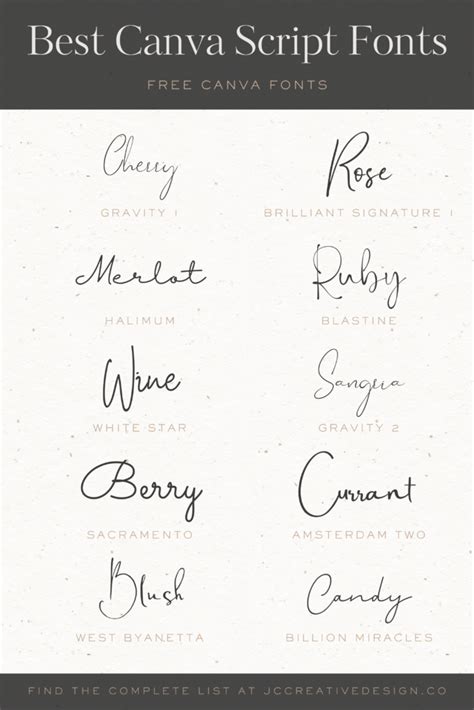 Best Canva Script Fonts
FREE CANVA FONTS
Cherry Rose
GRAVITY 1 BRILLIANT SIGNATURE 1
Merlot Ruby
HALIMUM BLASTINE
Wine Sangria
WHITE STAR GRAVITY 2
Berry Currant
SACRAMENTO AMSTERDAM TWO
Blush Candy
WEST BYANETTA BILLION MIRACLES
FIND THE COMPLETE LIST AT JCCREATIVEDESIGN.CO